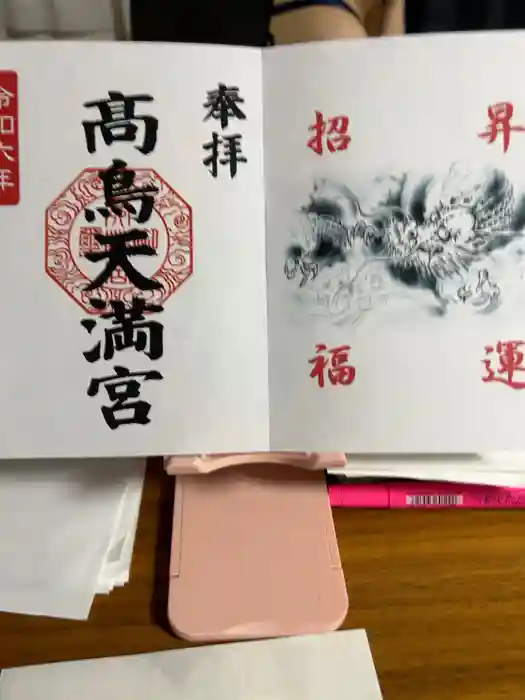 昇運
招福
奉拝
髙鳥天満宮
令和六年